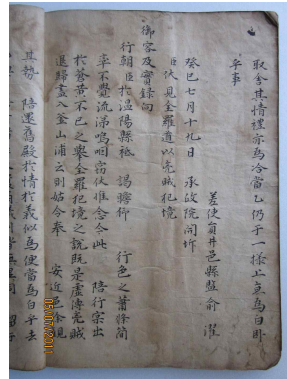 取舍其情禮亦爲洽當乙仍于一揉上直爲白卧
乎事
差使員井邑縣監俞濯
癸巳七月十九日 承政院開坼
臣伏見全羅道以兇賊犯境
御容及實錄向
行朝臣於温陽縣祗 謁瞻仰 行色之蕭條簡
率不覺流涕嗚咽當伏惟念今此 陪行宗出
於蒼黄不已之擧全羅犯境之說既是虚傳兇賊
退歸盡入釜山浦云則姑令奉 安近邑徐觀
其勢 陪還舊殿於情於義似爲便當爲白乎去
05/07/2011